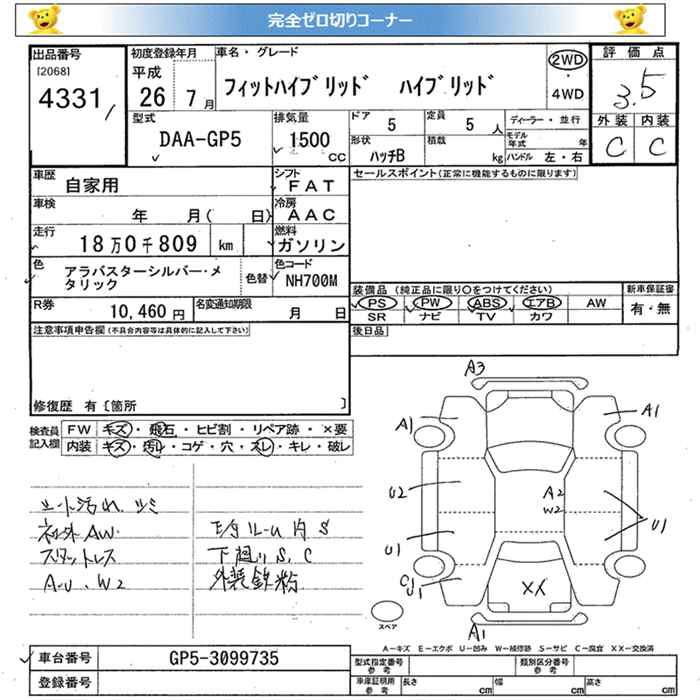 完全ゼロ切りコーナー
出品番号
[2068]
4331
初度登録年月
平成
26 7月
車名・グレード
フィットハイブリッド ハイブリッド
2WD
・
4WD
評価点
3.5
外装 内装
C C
型式
DAA-GP5
排気量
1500
CC
ドア
5
定員
5人
形状
ハッチB
積載
kg
ディーラー・並行
モデル年式 年
ハンドル 左・右
車歴
自家用
シフト
FAT
車検
年 月( 日)
冷房
AAC
走行
18万0千809 km
燃料
ガソリン
色
アラバスターシルバー・メタリック
色替
色コード
NH700M
R券
10,460円
名変通知期限
月 日
セールスポイント(正常に機能するものに限ります)
装備品(純正品に限り○をつけてください)
PS PW ABS エアB AW
SR ナビ TV カワ
新車保証書
有・無
後日品
注意事項申告欄(不具合内容等は具体的に記入して下さい)
修復歴 有〔箇所 〕
検査員
記入欄
FW キズ・飛石・ヒビ割・リペア跡・×要
内装 キズ・汚れ・コゲ・穴・スレ・キレ・破レ
シート汚れ、シミ
社外AW.
スタットレス
A-U、W2
モール-U 内S
下廻りS、C
外装鉄粉
A3
A1
A1
U2
A2
W2
U1
U1
C1
U1
XX
A1
スペア
A-キズ E-エクボ U-凹み W-補修跡 S-サビ C-腐食 XX-交換済
車台番号
GP5-3099735
登録番号
型式指定番号
参考
類別区分番号
参考
車庫証明用
参考
長さ cm 幅 cm 高さ cm